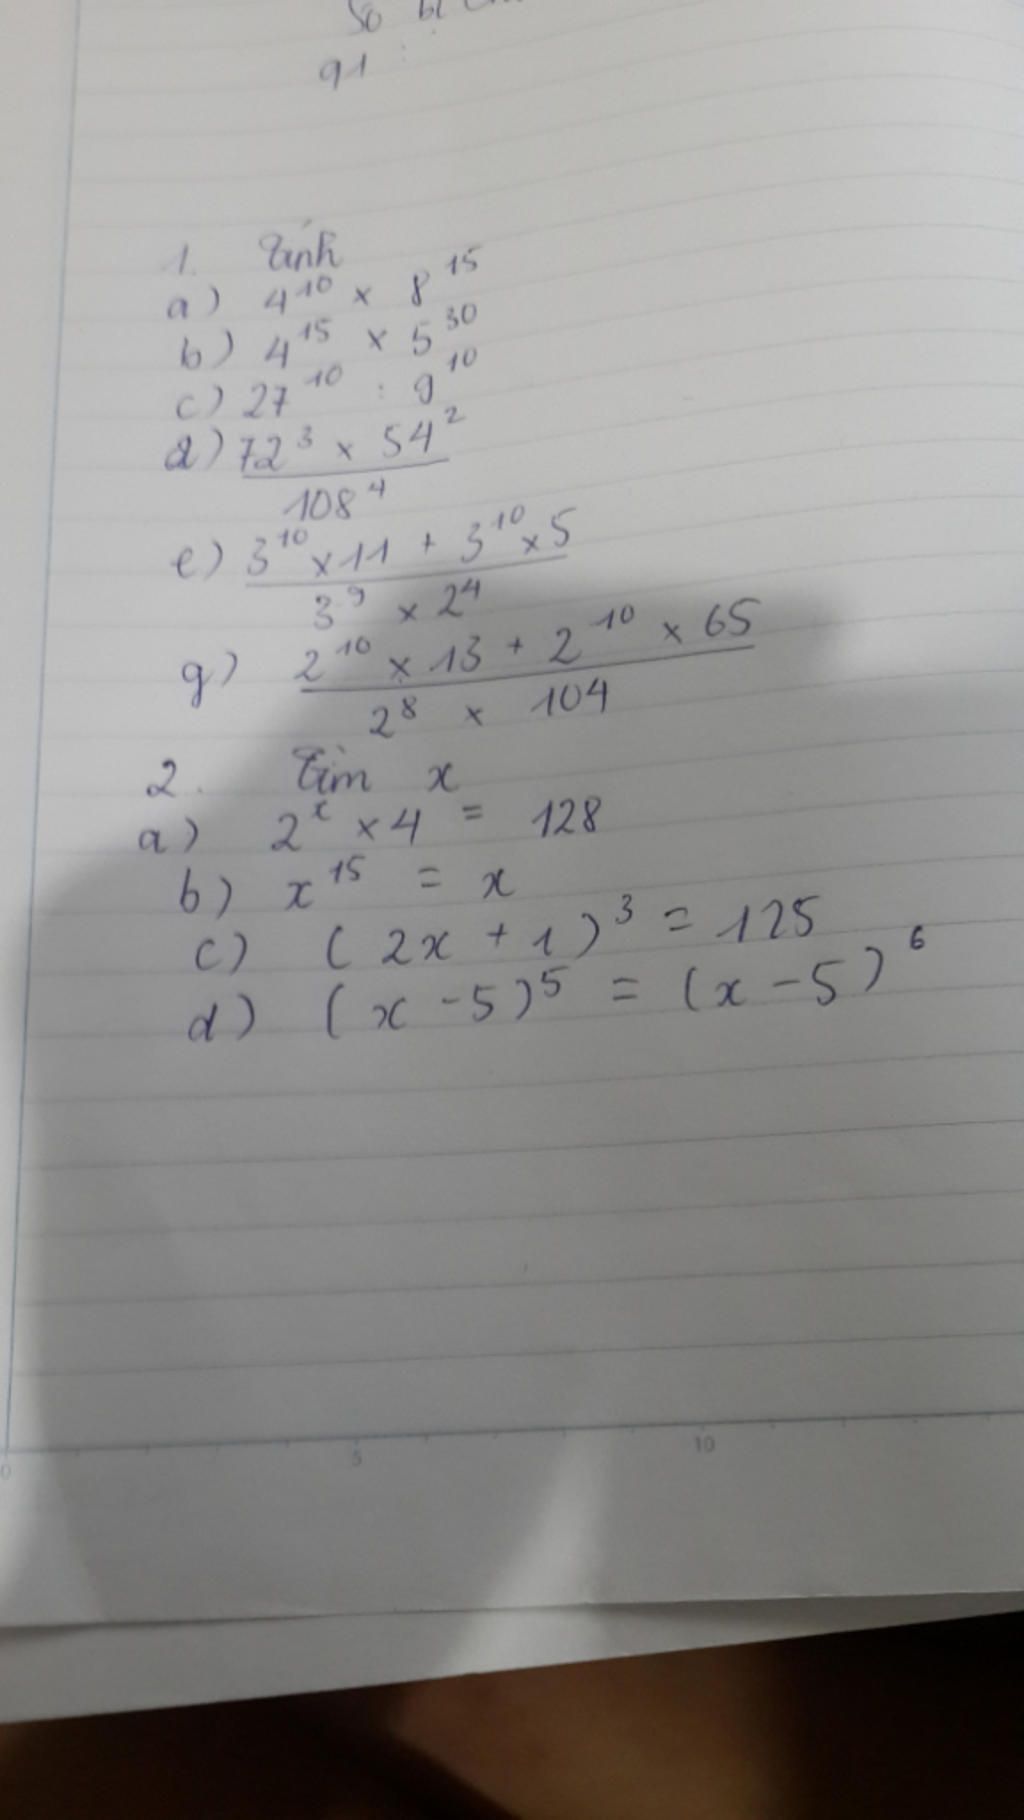 91 :
1. Tính
a) 4¹⁰ × 8¹⁵
b) 4¹⁵ × 5³⁰
c) 27¹⁰ : 9¹⁰
d) 72³ × 54²
108⁴
e) 3¹⁰ × 11 + 3¹⁰ × 5
3⁹ × 2⁴
g) 2¹⁰ × 13 + 2¹⁰ × 65
2⁸ × 104
2. Tìm x
a) 2ˣ × 4 = 128
b) x¹⁵ = x
c) (2x + 1)³ = 125
d) (x - 5)⁵ = (x - 5)⁶
0 5 10